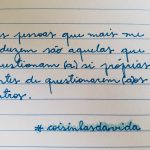 as pessoas que mais me
seduzem são aquelas que
questionam (a) si próprias
antes de questionarem (a)os
outros.
#coisinlasdavida